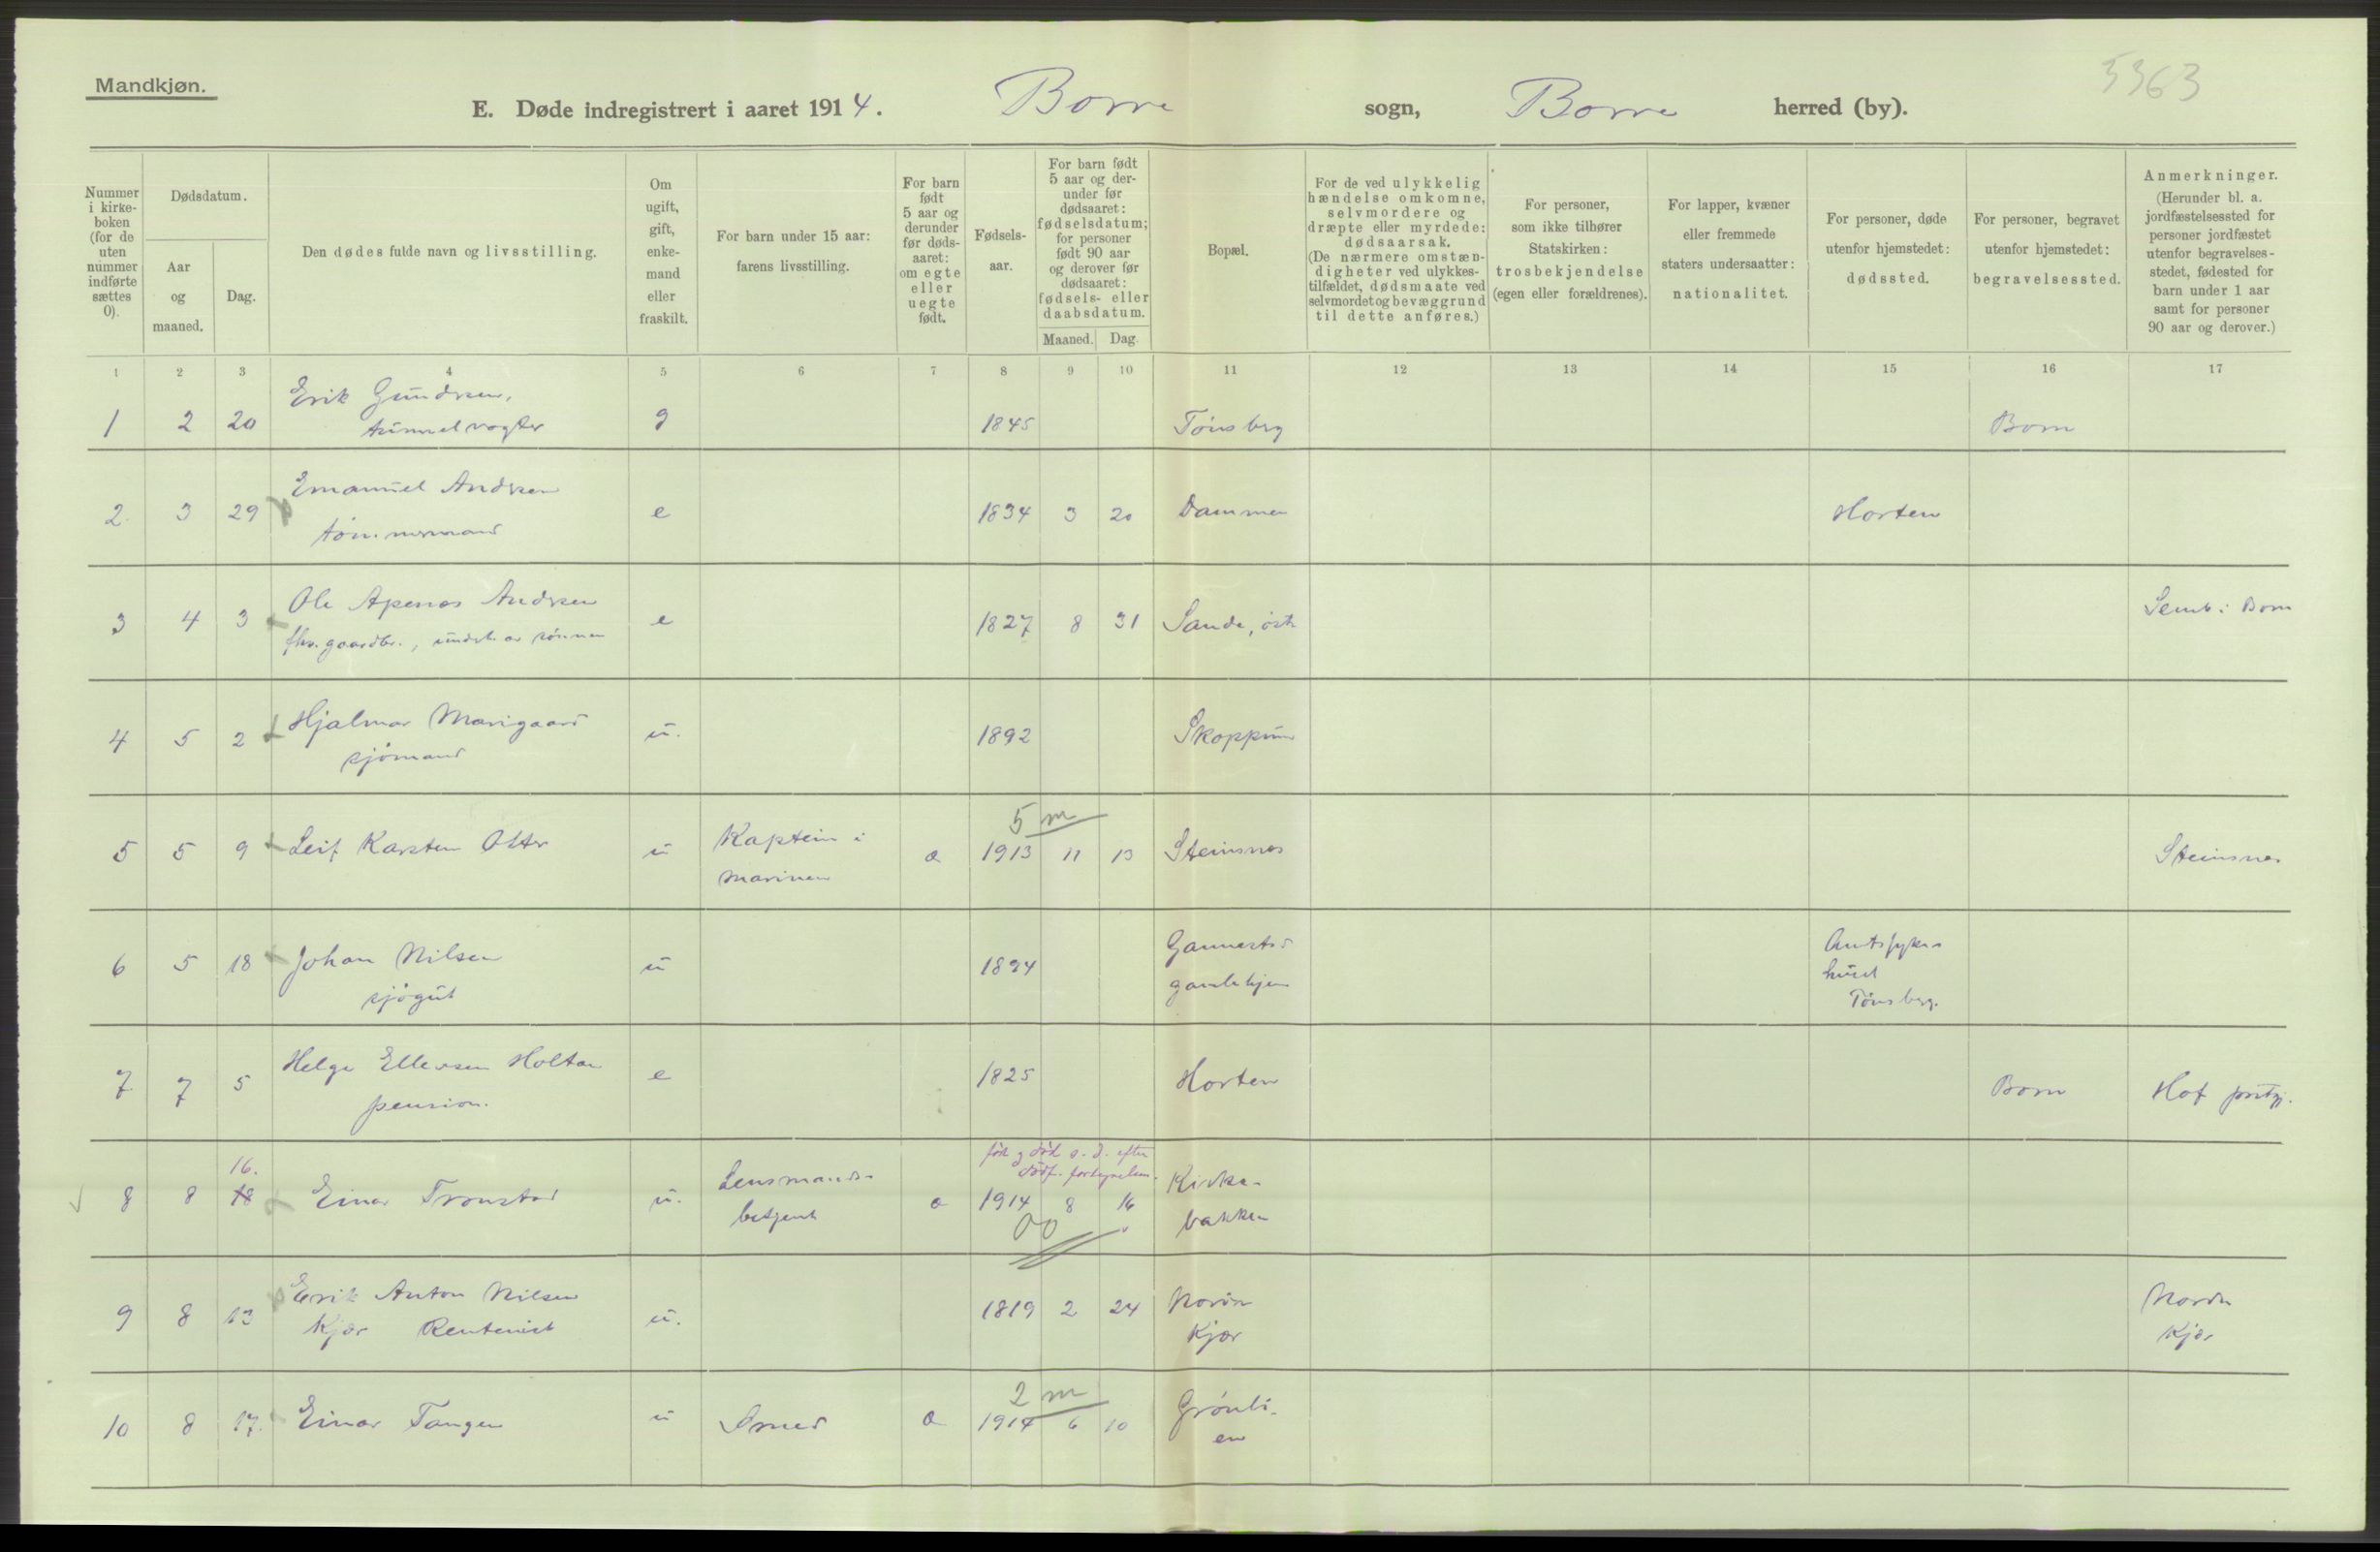 Mandkjøn.
5363
E. Døde indregistrert i aaret 1914. Borre sogn, Borre herred (by).
Nummer
i kirke-
boken
(for de
uten
nummer
indførte
sættes
0).
Dødsdatum.
Aar
og
maaned.
Dag.
Den dødes fulde navn og livsstilling.
Om
ugift,
gift,
enke-
mand
eller
fraskilt.
For barn under 15 aar:
farens livsstilling.
For barn
født
5 aar og
derunder
før døds-
aaret:
om egte
eller
uegte
født.
Fødsels-
aar.
For barn født
5 aar og der-
under før
dødsaaret:
fødselsdatum;
for personer
født 90 aar
og derover før
dødsaaret:
fødsels- eller
daabsdatum.
Maaned. Dag.
Bopæl.
For de ved ulykkelig
hændelse omkomne,
selvmordere og
dræpte eller myrdede:
dødsaarsak.
(De nærmere omstæn-
digheter ved ulykkes-
tilfældet, dødsmaate ved
selvmordet og bevæggrund
til dette anføres.)
For personer,
som ikke tilhører
Statskirken:
trosbekjendelse
(egen eller forældrenes).
For lapper, kvæner
eller fremmede
staters undersaatter:
nationalitet.
For personer, døde
utenfor hjemstedet:
dødssted.
For personer, begravet
utenfor hjemstedet:
begravelsessted.
Anmerkninger.
(Herunder bl. a.
jordfæstelsessted for
personer jordfæstet
utenfor begravelses-
stedet, fødested for
barn under 1 aar
samt for personer
90 aar og derover.)
1 2 3 4 5 6 7 8 9 10 11 12 13 14 15 16 17
Erik Gundersen,
1 2 20 tunnelvogter g 1845 Tønsberg Borre
Emanuel Andersen
2 3 29 e 1834 3 20 Dammen Horten
tømmermand
Ole Apenes Andersen
3 4 3 e 1827 8 31 Sande, østre Semb i Borre
fhv. gaardbr., underh. av sønnen
Hjalmar Marigaard
4 5 2 u. 1892 Skoppum
sjømand
5 m
5 5 9 Leif Karsten Otter u Kaptein i a 1913 11 13 Steinsnes Steinsnes
marinen
Johan Nilsen
6 5 18 u 1894
sjøgut
Amtssyke-
huset
Tønsberg.
Helge Ellevsen Holtan
7 7 5 e 1825 Horten Borre Hof prstgj.
pension.
født og død s. d. efter
dødf. fortegnelsen.
16.
8 8 18 Einar Tronstad u. Lensmands- a 1914 8 16 Kirke-
betjent bakken
00
Erik Anton Nilsen
9 8 13 u. 1819 2 24 Nordre Nordre
Kjær Rentenist Kjær Kjær
2 m
10 8 17. Einar Tangen u Smed a 1914 6 10 Grønli-
en